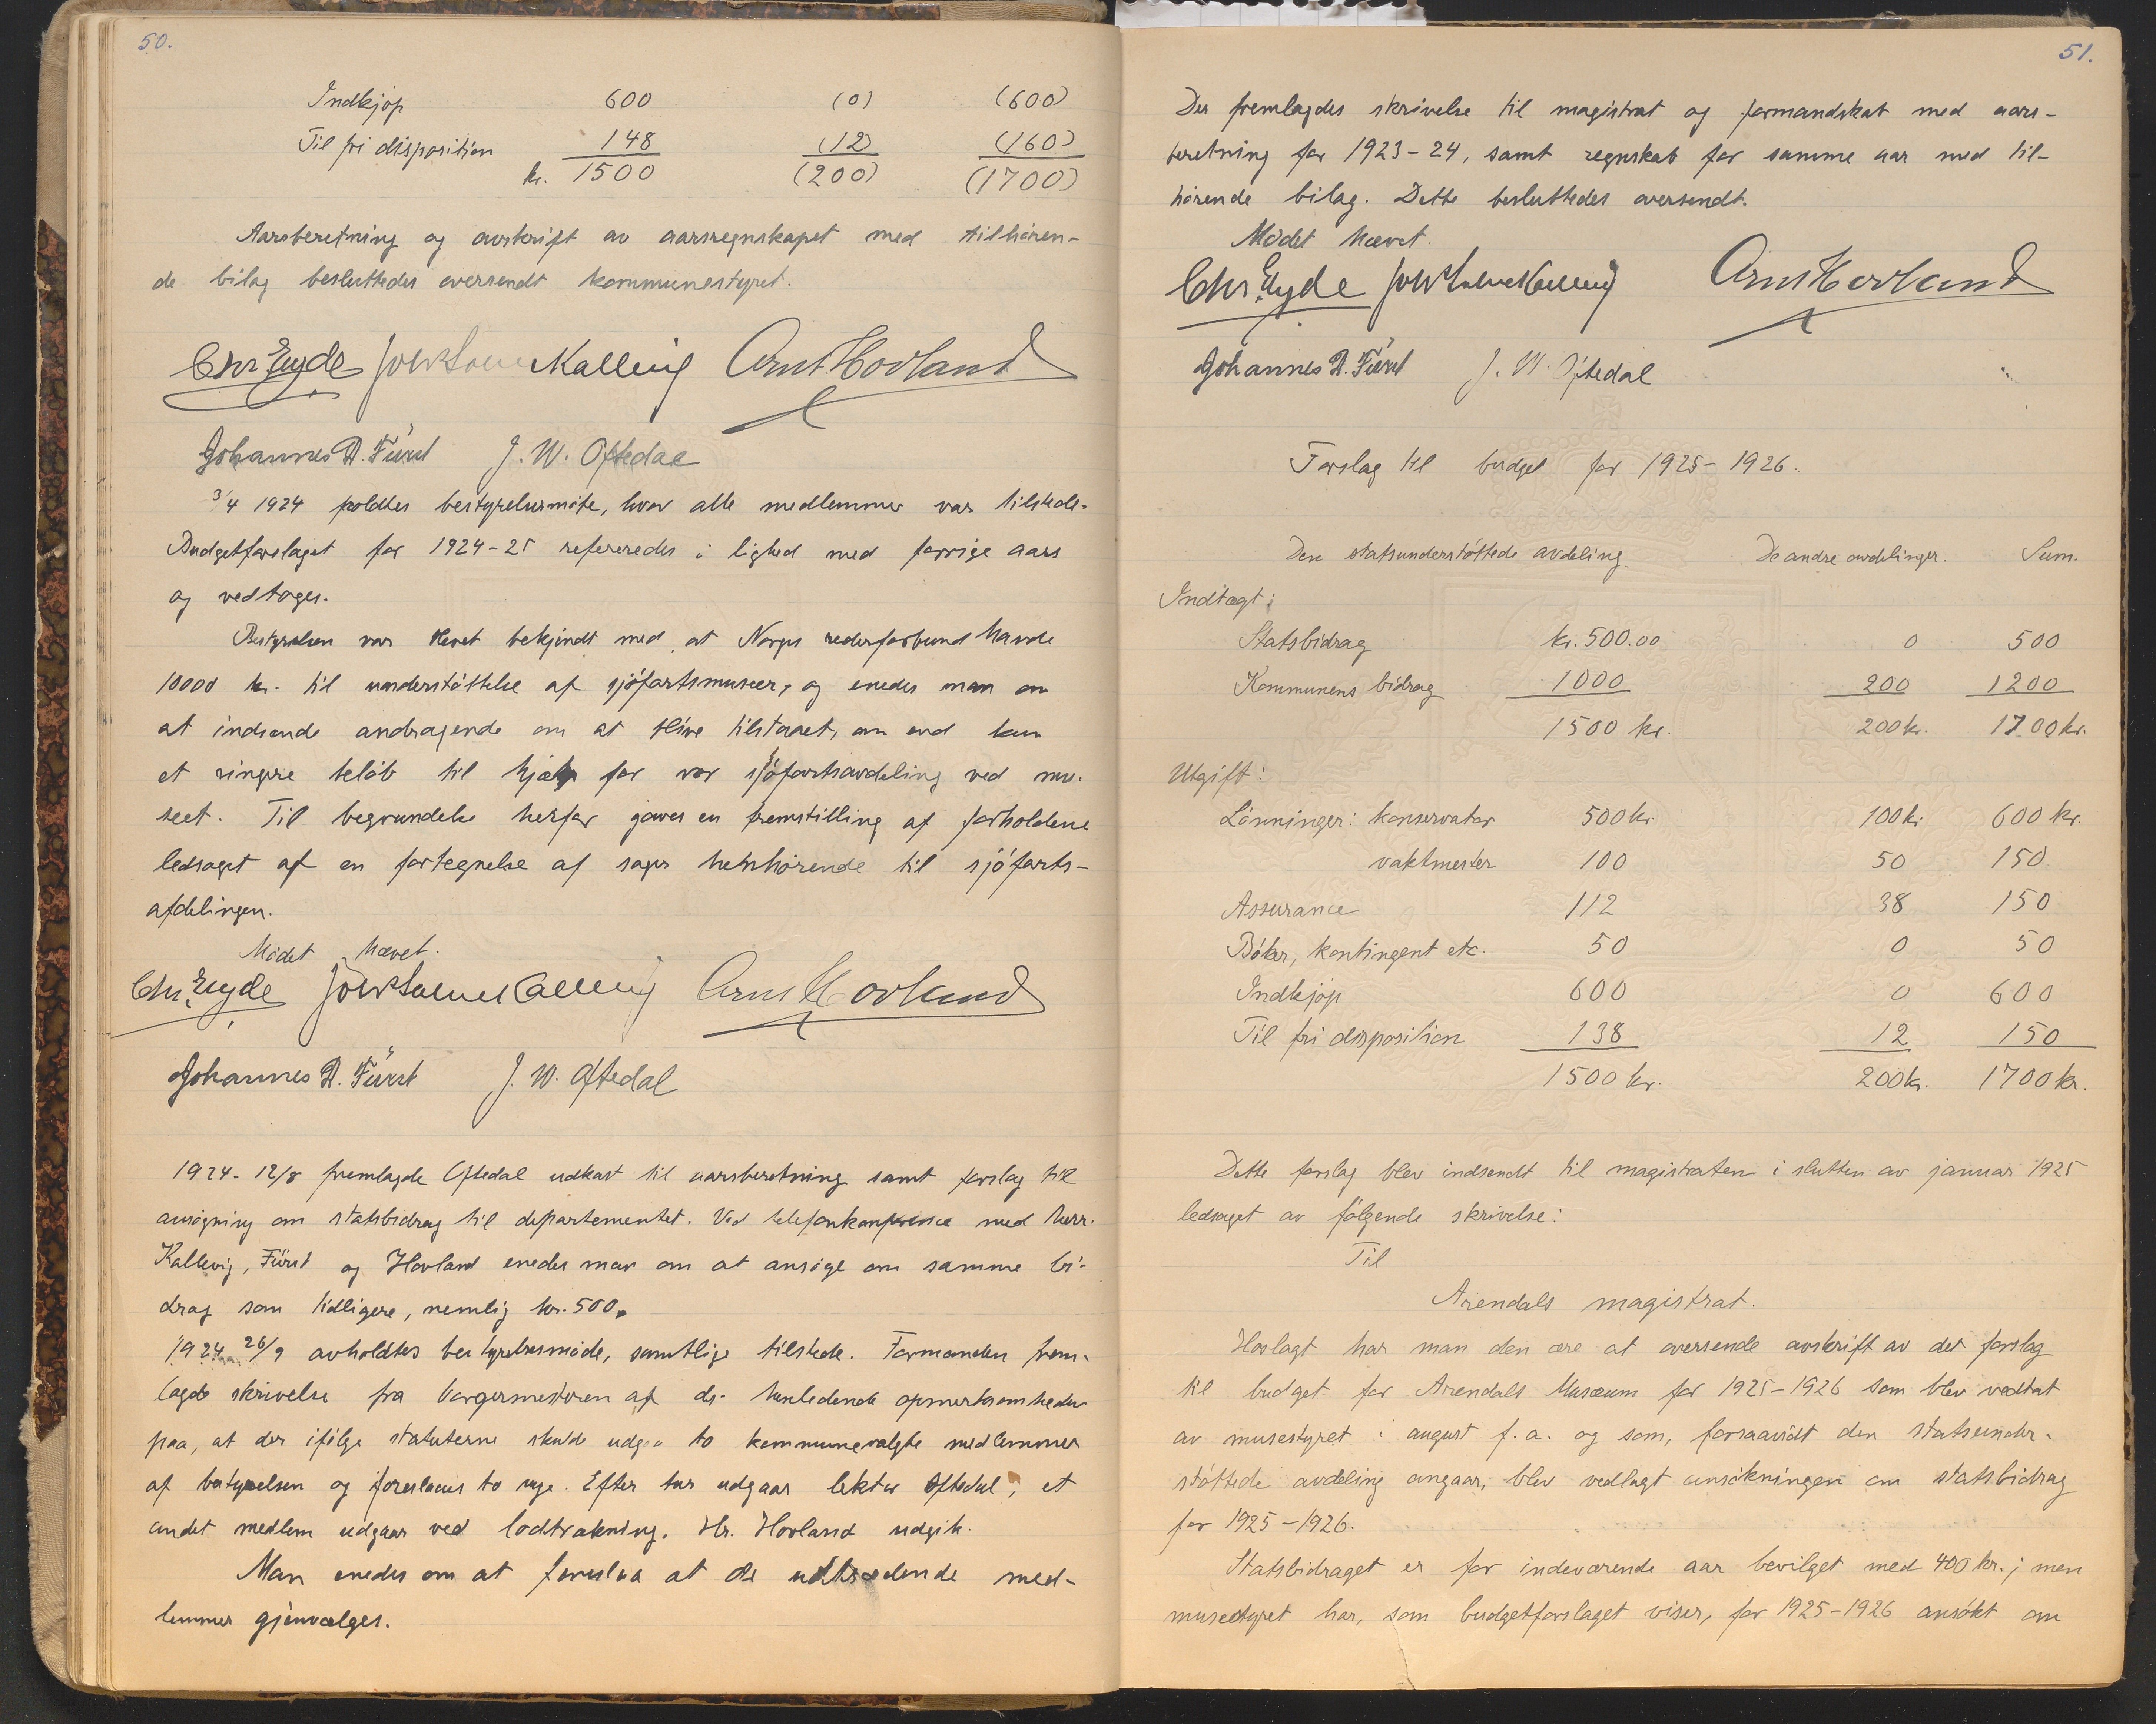 50.
Indkjøp 600 (0) (600)
Til fri disposition 148 (12) (160)
kr. 1500 (200) (1700)
Aarsberetning og avskrift av aarsregnskapet med tilhøren-
de bilag besluttedes oversendt kommunestyret.
Chr. Eyde Kallevig Arnt Hovland
Johannes A. Fürst J. W. Oftedal
3/4 1924 holdtes bestyrelsesmøte, hvor alle medlemmer var tilstede.
Budgetforslaget for 1924-25 refereredes i lighed med forrige aars
og vedtoges.
Bestyrelsen var blevet bekjendt med, at Norges rederforbund havde
10000 kr. til understøttelse af sjøfartsmuseer, og enedes man om
at indsende andragende om at blive tilstaaet, om end kun
et ringere beløb til hjælp for vor sjøfartsavdeling ved mu-
seet. Til begrundelse herfor gaves en fremstilling af forholdene
ledsaget af en fortegnelse af sager henhørende til sjøfarts-
afdelingen.
Mødet hævet.
Chr. Eyde Kallevig Arnt Hovland
Johannes A. Fürst J. W. Oftedal
1924. 12/8 fremlagde Oftedal udkast til aarsberetning samt forslag til
ansøgning om statsbidrag til departementet. Ved telefonkonference med herr.
Kallevig, Fürst og Hovland enedes man om at ansøge om samme bi-
drag som tidligere, nemlig kr. 500.
1924 26/9 avholdtes bestyrelsesmøde, samtlige tilstede. Formanden frem-
lagde skrivelse fra borgermesteren af ds. henledende opmerksomheden
paa, at der ifølge statuterne skulde udgaa to kommunevalgte medlemmer
af bestyrelsen og foreslaaes to nye. Efter tur udgaar lektor Oftedal, et
andet medlem udgaar ved lodtrækning. Hr. Hovland udgik.
Man enedes om at foreslaa at de udtrædende med-
lemmer gjenvælges.
51.
Der fremlagdes skrivelse til magistrat og formandskab med aars-
beretning for 1923-24, samt regnskab for samme aar med til-
hørende bilag. Dette besluttedes oversendt.
Mødet hævet.
Chr. Eyde Kallevig Arnt Hovland
Johannes A. Fürst J. W. Oftedal
Forslag til budget for 1925-1926.
Den statsunderstøttede avdeling. De andre avdelinger. Sum.
Indtægt:
Statsbidrag kr. 500.00 0 500
Kommunens bidrag 1000 200 1200
1500 kr. 200 kr. 1700 kr.
Utgift:
Lønninger: konservator 500 kr. 100 kr. 600 kr.
vaktmester 100 50 150
Assurance 112 38 150
Bøker, kontingent etc. 50 0 50
Indkjøp 600 0 600
Til fri disposition 138 12 150
1500 kr. 200 kr. 1700 kr.
Dette forslag blev indsendt til magistraten i slutten av januar 1925
ledsaget av følgende skrivelse:
Til
Arendals magistrat.
Hoslagt har man den ære at oversende avskrift av det forslag
til budget for Arendals Musæum for 1925-1926 som blev vedtat
av musestyret i august f.a. og som, forsaavidt den statsunder-
støttede avdeling angaar, blev vedlagt ansøkningen om statsbidrag
for 1925-1926.
Statsbidraget er for indeværende aar bevilget med 400 kr.; men
musestyret har, som budgetforslaget viser, for 1925-1926 ansøkt om